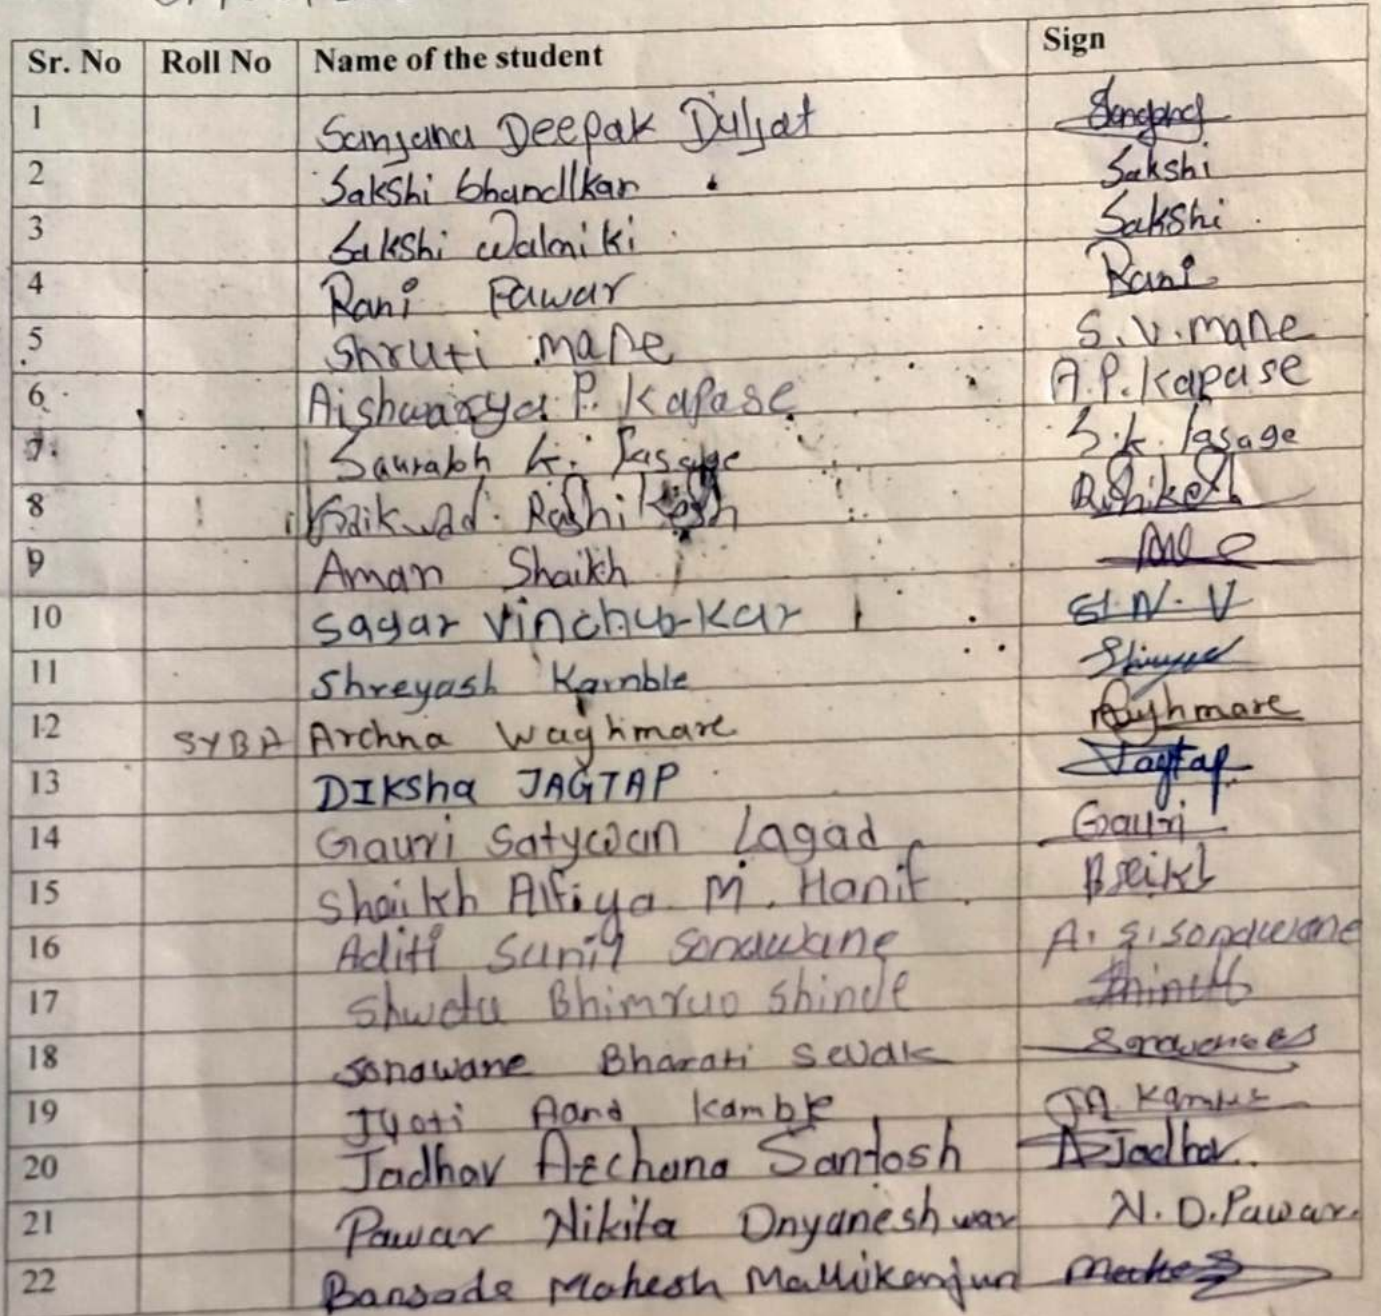 Sr. No Roll No Name of the student Sign
1 Sanjana Deepak Duljat
2 Sakshi bhandlkar Sakshi
3 Sakshi walmiki Sakshi
4 Rani Pawar Rani
5 Shruti mane S.V.mane
6 Aishwarya P. Kapase A.P.kapase
7 Saurabh K. Jasage S.K. Jasage
8 Gaikwad Rushikesh Rushikesh
9 Aman Shaikh
10 Sagar Vinchurkar S.N.V
11 Shreyash Kamble
12 SYBA Archna Waghmare Waghmare
13 DIKsha JAGTAP Jagtap
14 Gauri Satywan Lagad Gauri
15 Shaikh Alfiya M. Hanif
16 Aditi Sunil Sonawane A.S.Sonawane
17 Shweta Bhimrao Shinde
18 Sonawane Bharati Sevak
19 Jyoti Aand Kamble JA Kamble
20 Jadhav Archana Santosh A Jadhav
21 Pawar Nikita Dnyaneshwar N.D.Pawar.
22 Bansode Mahesh Mallikarjun